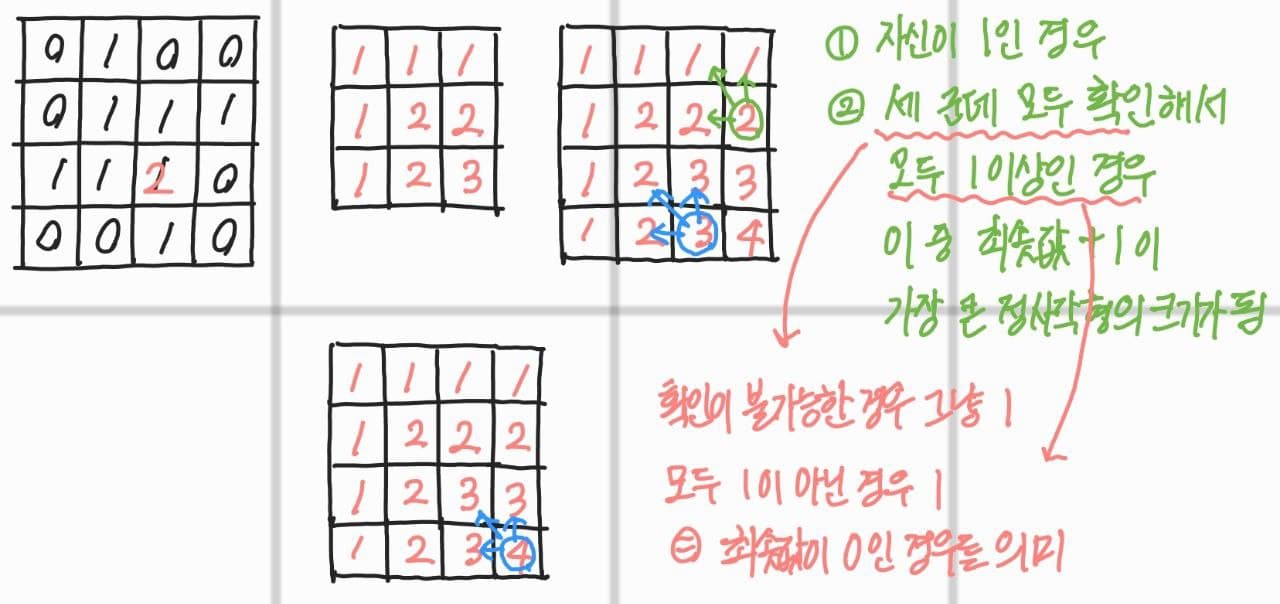 0 1 0 0
0 1 1 1
1 1 2 0
0 0 1 0
1 1 1
1 2 2
1 2 3
1 1 1 1
1 2 2 2
1 2 3 3
1 2 3 4
① 자신이 1인 경우
② 세 군데 모두 확인해서
모두 1이상인 경우
이 중 최솟값 + 1이
가장 큰 정사각형의 크기가 됨
1 1 1 1
1 2 2 2
1 2 3 3
1 2 3 4
확인이 불가능한 경우 그냥 1
모두 1이 아닌 경우 1
= 최솟값이 0인 경우를 의미